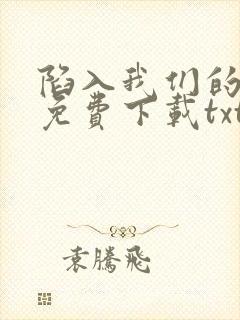 陷入我们的
免費下載txt
袁騰飛